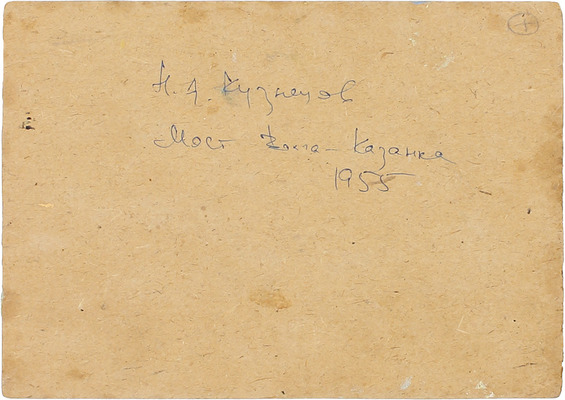 Н. А. Кузнецов
Мост Казанка
1955